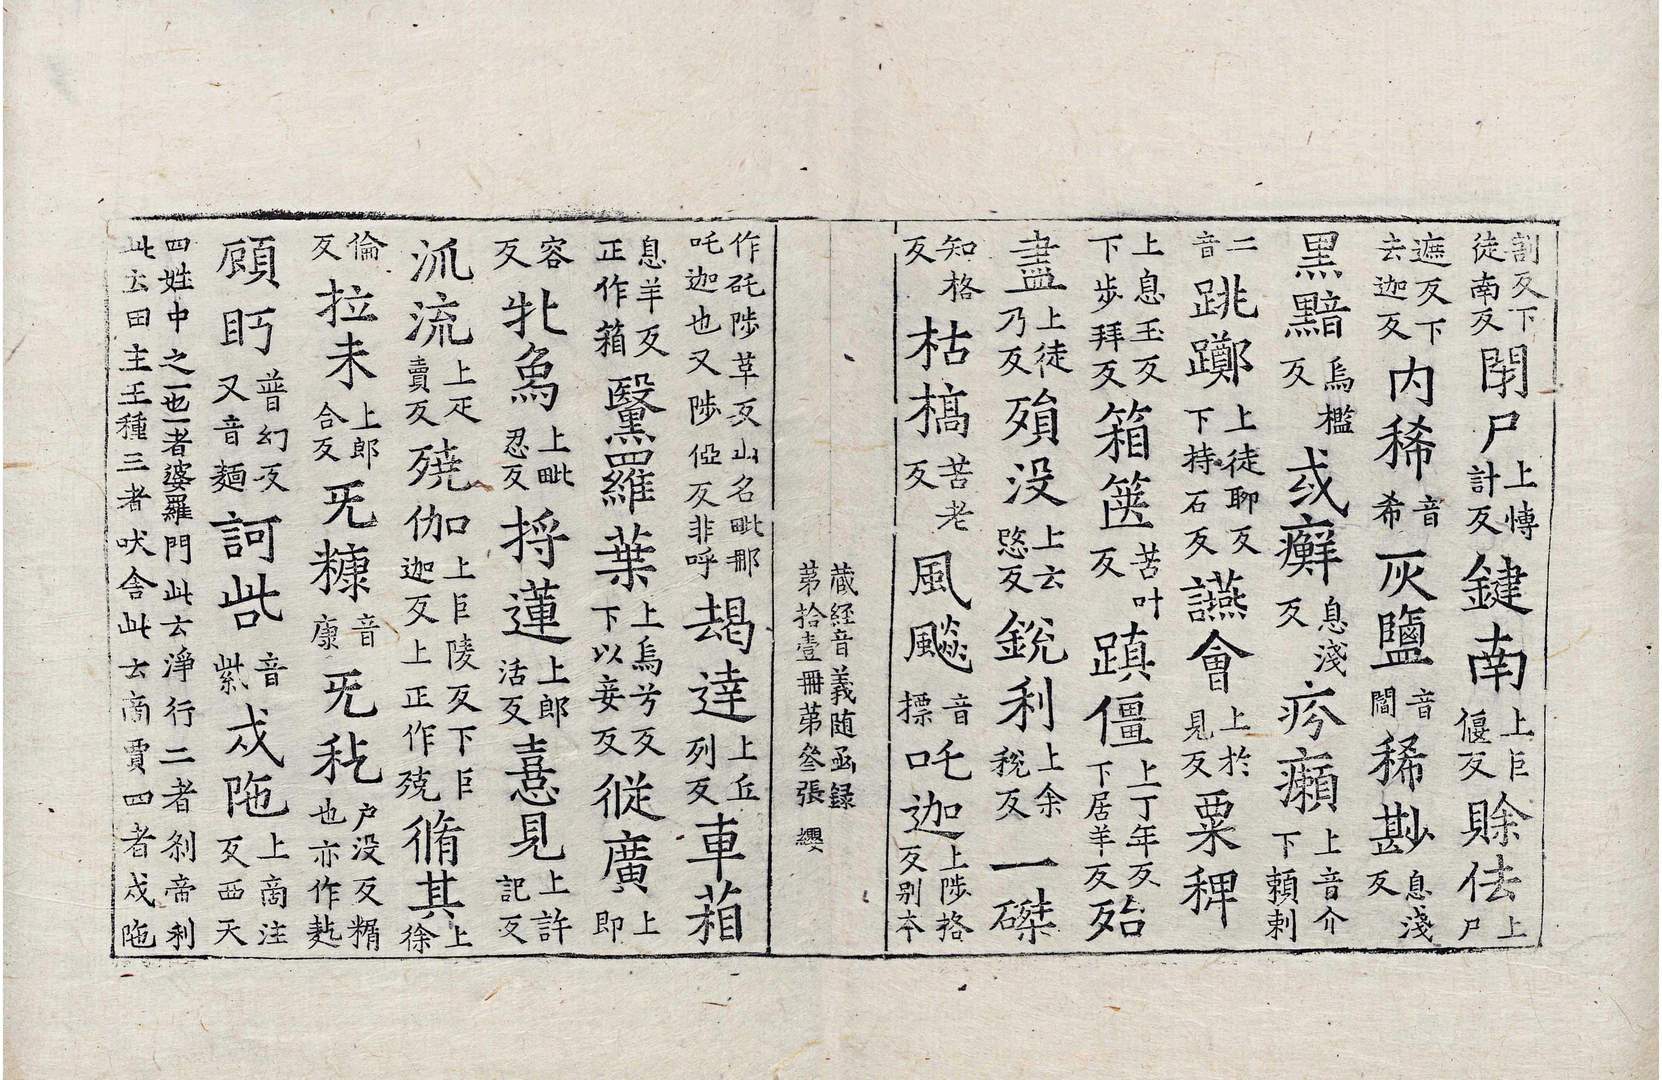 割反下徒南反閉尸上慱計反鍵南上巨偃反賖佉上尸
遮反下去迦反内稀音希灰鹽音閻稀尠息淺反
黒黯烏檻反或癬息淺反疥癩上音介下頼剌
二音跳躑上徒聊反下持石反讌會上於見反粟稗
上息玉反下步拜反箱篋苦叶反蹎僵上丁年反下居羊反殆
盡上徒乃反殞没上云愍反銳利上余稅反一磔
知格反枯槁苦老反風飈音摽吒迦上陟格反别本
藏経音義随函録
苐拾壹冊苐叄張 纓
作矺陟革反山名毗那吒迦也又陟俹反非呼朅達上丘列反車葙
息羊反正作箱鷖羅葉上烏兮反下以妾反縱廣上即
容反牝鳥上毗忍反捋蓮上郎活反憙見上許記反
泒流上疋賣反殑伽上巨陵反下巨迦反上正作殑脩其上徐
倫反拉未上郎合反旡糠音康旡籺户没反糏也亦作麧
頋眄普幻反又音麺訶呰音紫戍陁上商注反西天
四姓中之一也一者婆羅門此云淨行二者刹帝利
此云田主王種三者吠舍此云商賈四者戍陁